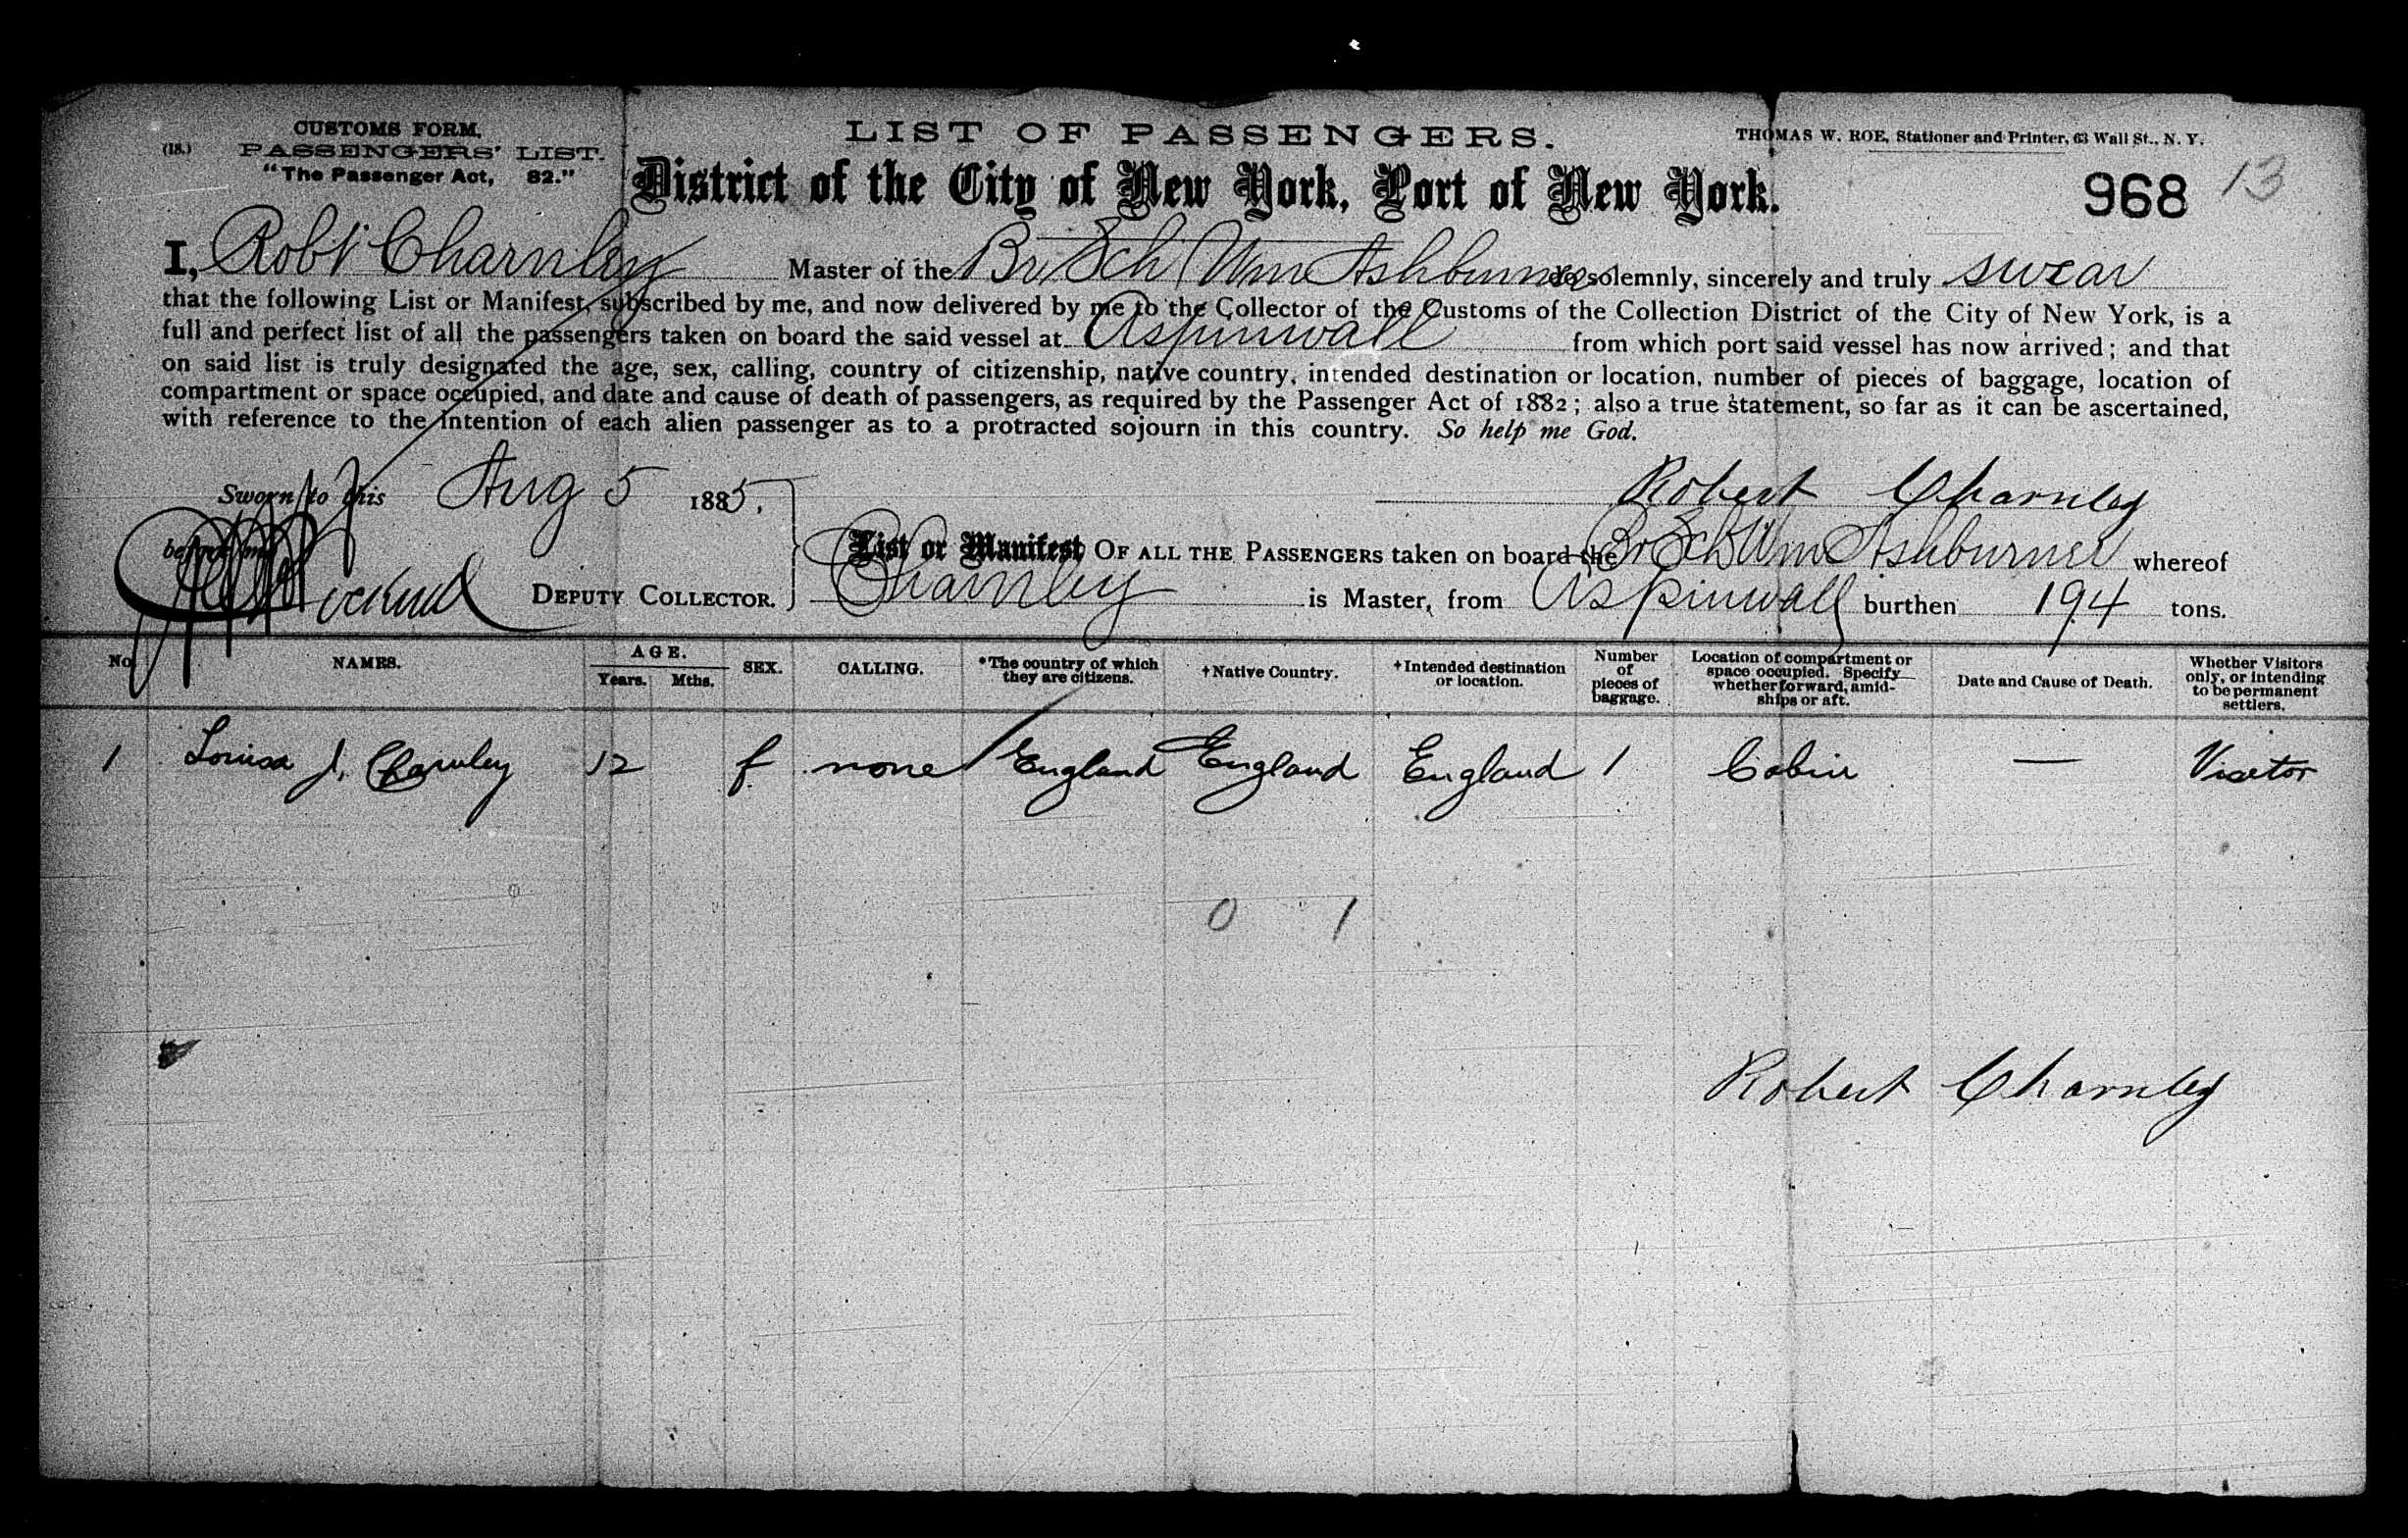 CUSTOMS FORM,
(18.) PASSENGERS' LIST.
"The Passenger Act, 82."
LIST OF PASSENGERS.
THOMAS W. ROE, Stationer and Printer, 63 Wall St., N. Y.
District of the City of New York, Port of New York.
968 13
I, Robt Charnley Master of the Br Sch Wm Ashburner do solemnly, sincerely and truly swear
that the following List or Manifest, subscribed by me, and now delivered by me to the Collector of the Customs of the Collection District of the City of New York, is a
full and perfect list of all the passengers taken on board the said vessel at Aspinwall from which port said vessel has now arrived; and that
on said list is truly designated the age, sex, calling, country of citizenship, native country, intended destination or location, number of pieces of baggage, location of
compartment or space occupied, and date and cause of death of passengers, as required by the Passenger Act of 1882; also a true statement, so far as it can be ascertained,
with reference to the intention of each alien passenger as to a protracted sojourn in this country. So help me God.
Sworn to this Aug 5 1885,
Robert Charnley
before me
DEPUTY COLLECTOR.
List or Manifest OF ALL THE PASSENGERS taken on board the Br Sch Wm Ashburner whereof
Charnley is Master, from Aspinwall burthen 194 tons.
No. NAMES. AGE. Years. Mths. SEX. CALLING. *The country of which they are citizens. †Native Country. †Intended destination or location. Number of pieces of baggage. Location of compartment or space occupied. Specify whether forward, amidships or aft. Date and Cause of Death. Whether Visitors only, or intending to be permanent settlers.
1 Louisa J. Charnley 12 f none England England England 1 Cabin — Visitor
0 1
Robert Charnley